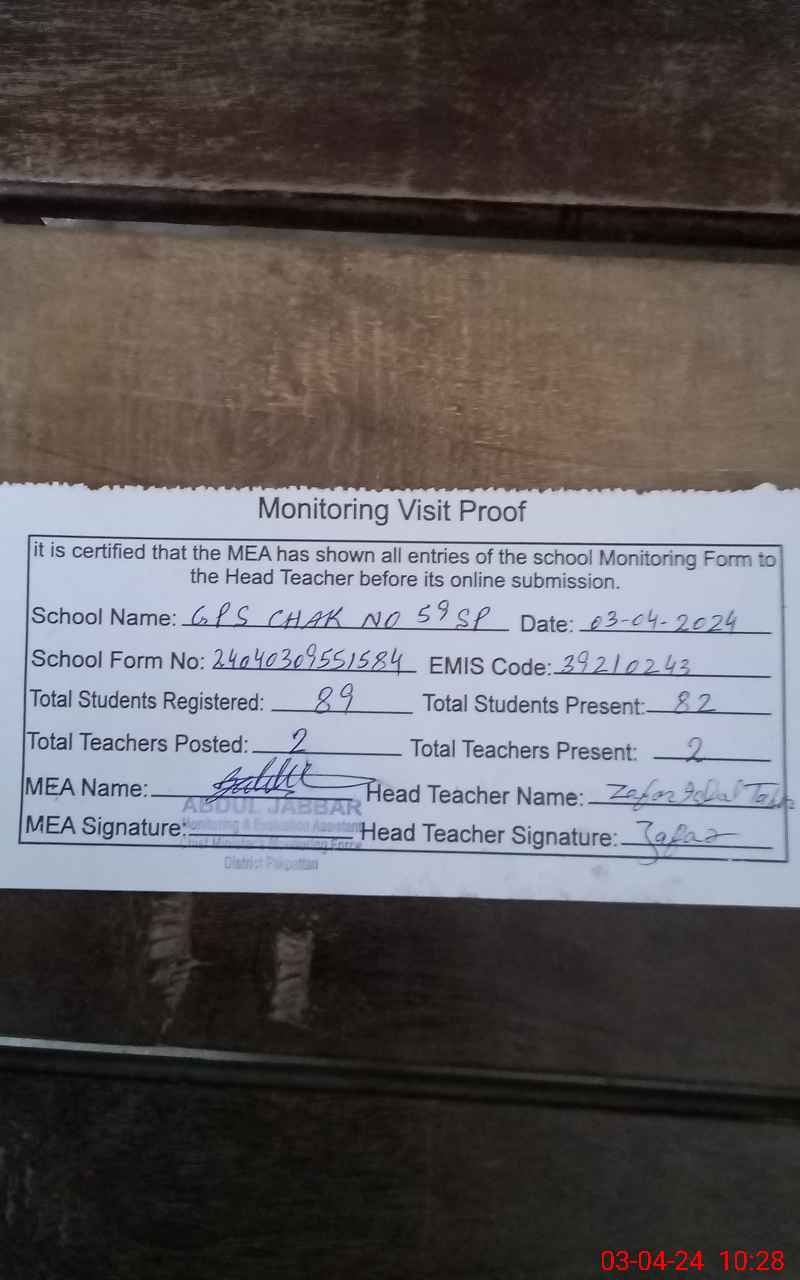 Monitoring Visit Proof
it is certified that the MEA has shown all entries of the school Monitoring Form to
the Head Teacher before its online submission.
School Name: GPS CHAK NO 59 SP Date: 03-04-2024
School Form No: 24040309551584 EMIS Code: 39210243
Total Students Registered: 89 Total Students Present: 82
Total Teachers Posted: 2 Total Teachers Present: 2
MEA Name: Head Teacher Name: Zafar Iqbal
ABDUL JABBAR
MEA Signature: Head Teacher Signature: Zafar
Monitoring & Evaluation Assistant
Chief Minister's Monitoring Force
District Pakpattan
03-04-24 10:28